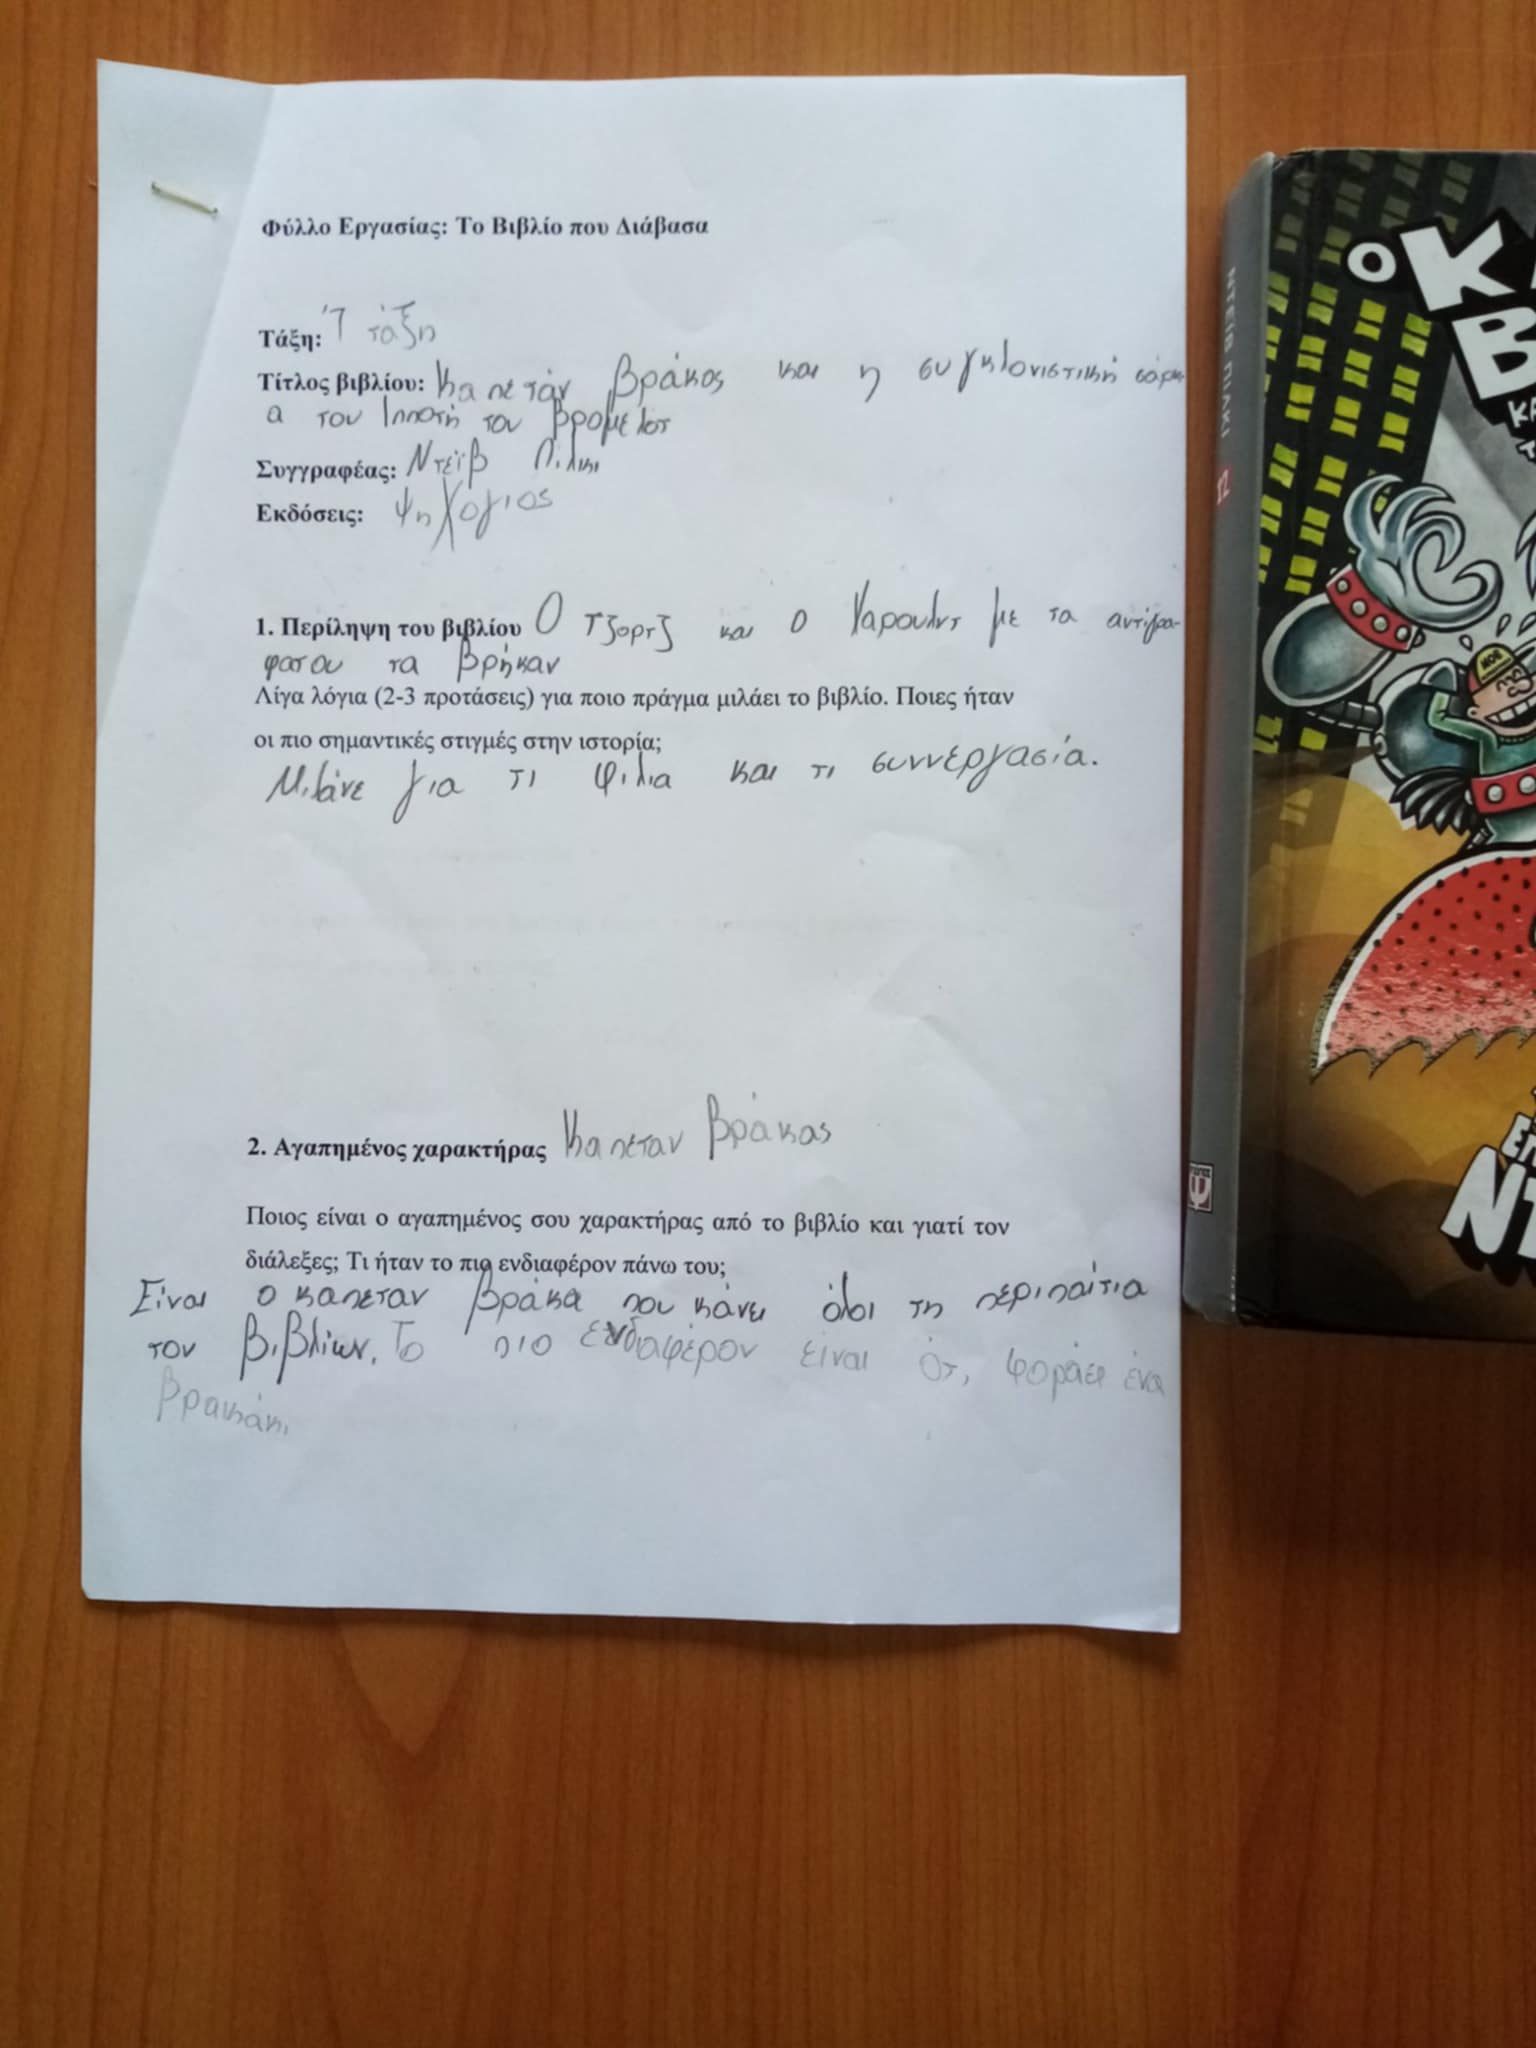 Φύλλο Εργασίας: Το Βιβλίο που Διάβασα
Τάξη: Ί τάξη
Τίτλος βιβλίου: Καπετάν Βράκας και η συγκλονιστική σάρκ
α του Ιπποτή του βρομελοτ
Συγγραφέας: Ντέϊβ Πιλκι
Εκδόσεις: Ψηχογιος
1. Περίληψη του βιβλίου Ο Τζορτζ και ο Χαρουλντ με τα αντίγρα-
φατου τα βρήκαν
Λίγα λόγια (2-3 προτάσεις) για ποιο πράγμα μιλάει το βιβλίο. Ποιες ήταν
οι πιο σημαντικές στιγμές στην ιστορία;
Μιλάνε για τι φιλια και τι συννεργασία.
2. Αγαπημένος χαρακτήρας Καπεταν βράκας
Ποιος είναι ο αγαπημένος σου χαρακτήρας από το βιβλίο και γιατί τον
διάλεξες; Τι ήταν το πιο ενδιαφέρον πάνω του;
Είναι ο καπεταν βράκα που κάνει όλοι τη περιπαίτια
τον βιβλίων. Το πιο ενδιαφέρον είναι ότι φοράει ένα
βρακάκι
ΝΤΕΪΒ ΠΙΛΚΙ
12
Ο Κ
Β
ΝΤ
Ψ